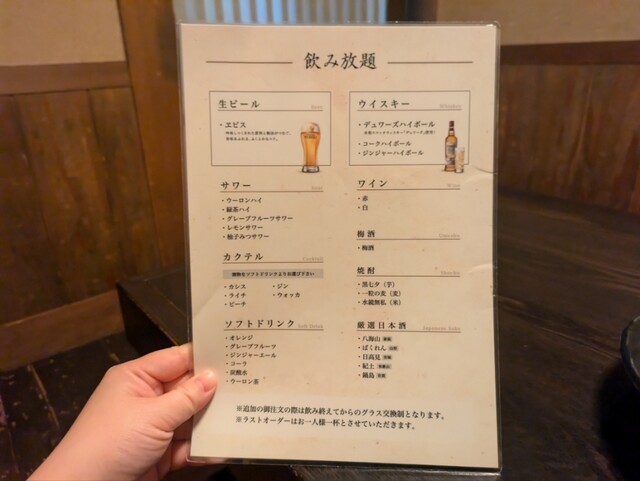 飲み放題
生ビール Beer
・ヱビス
ウイスキー Whiskey
・デュワーズハイボール
・コークハイボール
・ジンジャーハイボール
サワー Sour
・ウーロンハイ
・緑茶ハイ
・グレープフルーツサワー
・レモンサワー
・柚子みつサワー
ワイン Wine
・赤
・白
梅酒 Umeshu
・梅酒
カクテル Cocktail
割物をソフトドリンクよりお選び下さい
・カシス ・ジン
・ライチ ・ウォッカ
・ピーチ
焼酎 Shochu
・黒七夕（芋）
・一粒の麦（麦）
・水鏡無私（米）
ソフトドリンク Soft Drink
・オレンジ
・グレープフルーツ
・ジンジャーエール
・コーラ
・炭酸水
・ウーロン茶
厳選日本酒 Japanese Sake
・八海山
・ばくれん
・日高見
・紀土
・鍋島
※追加の御注文の際は飲み終えてからのグラス交換制となります。
※ラストオーダーはお一人様一杯とさせていただきます。